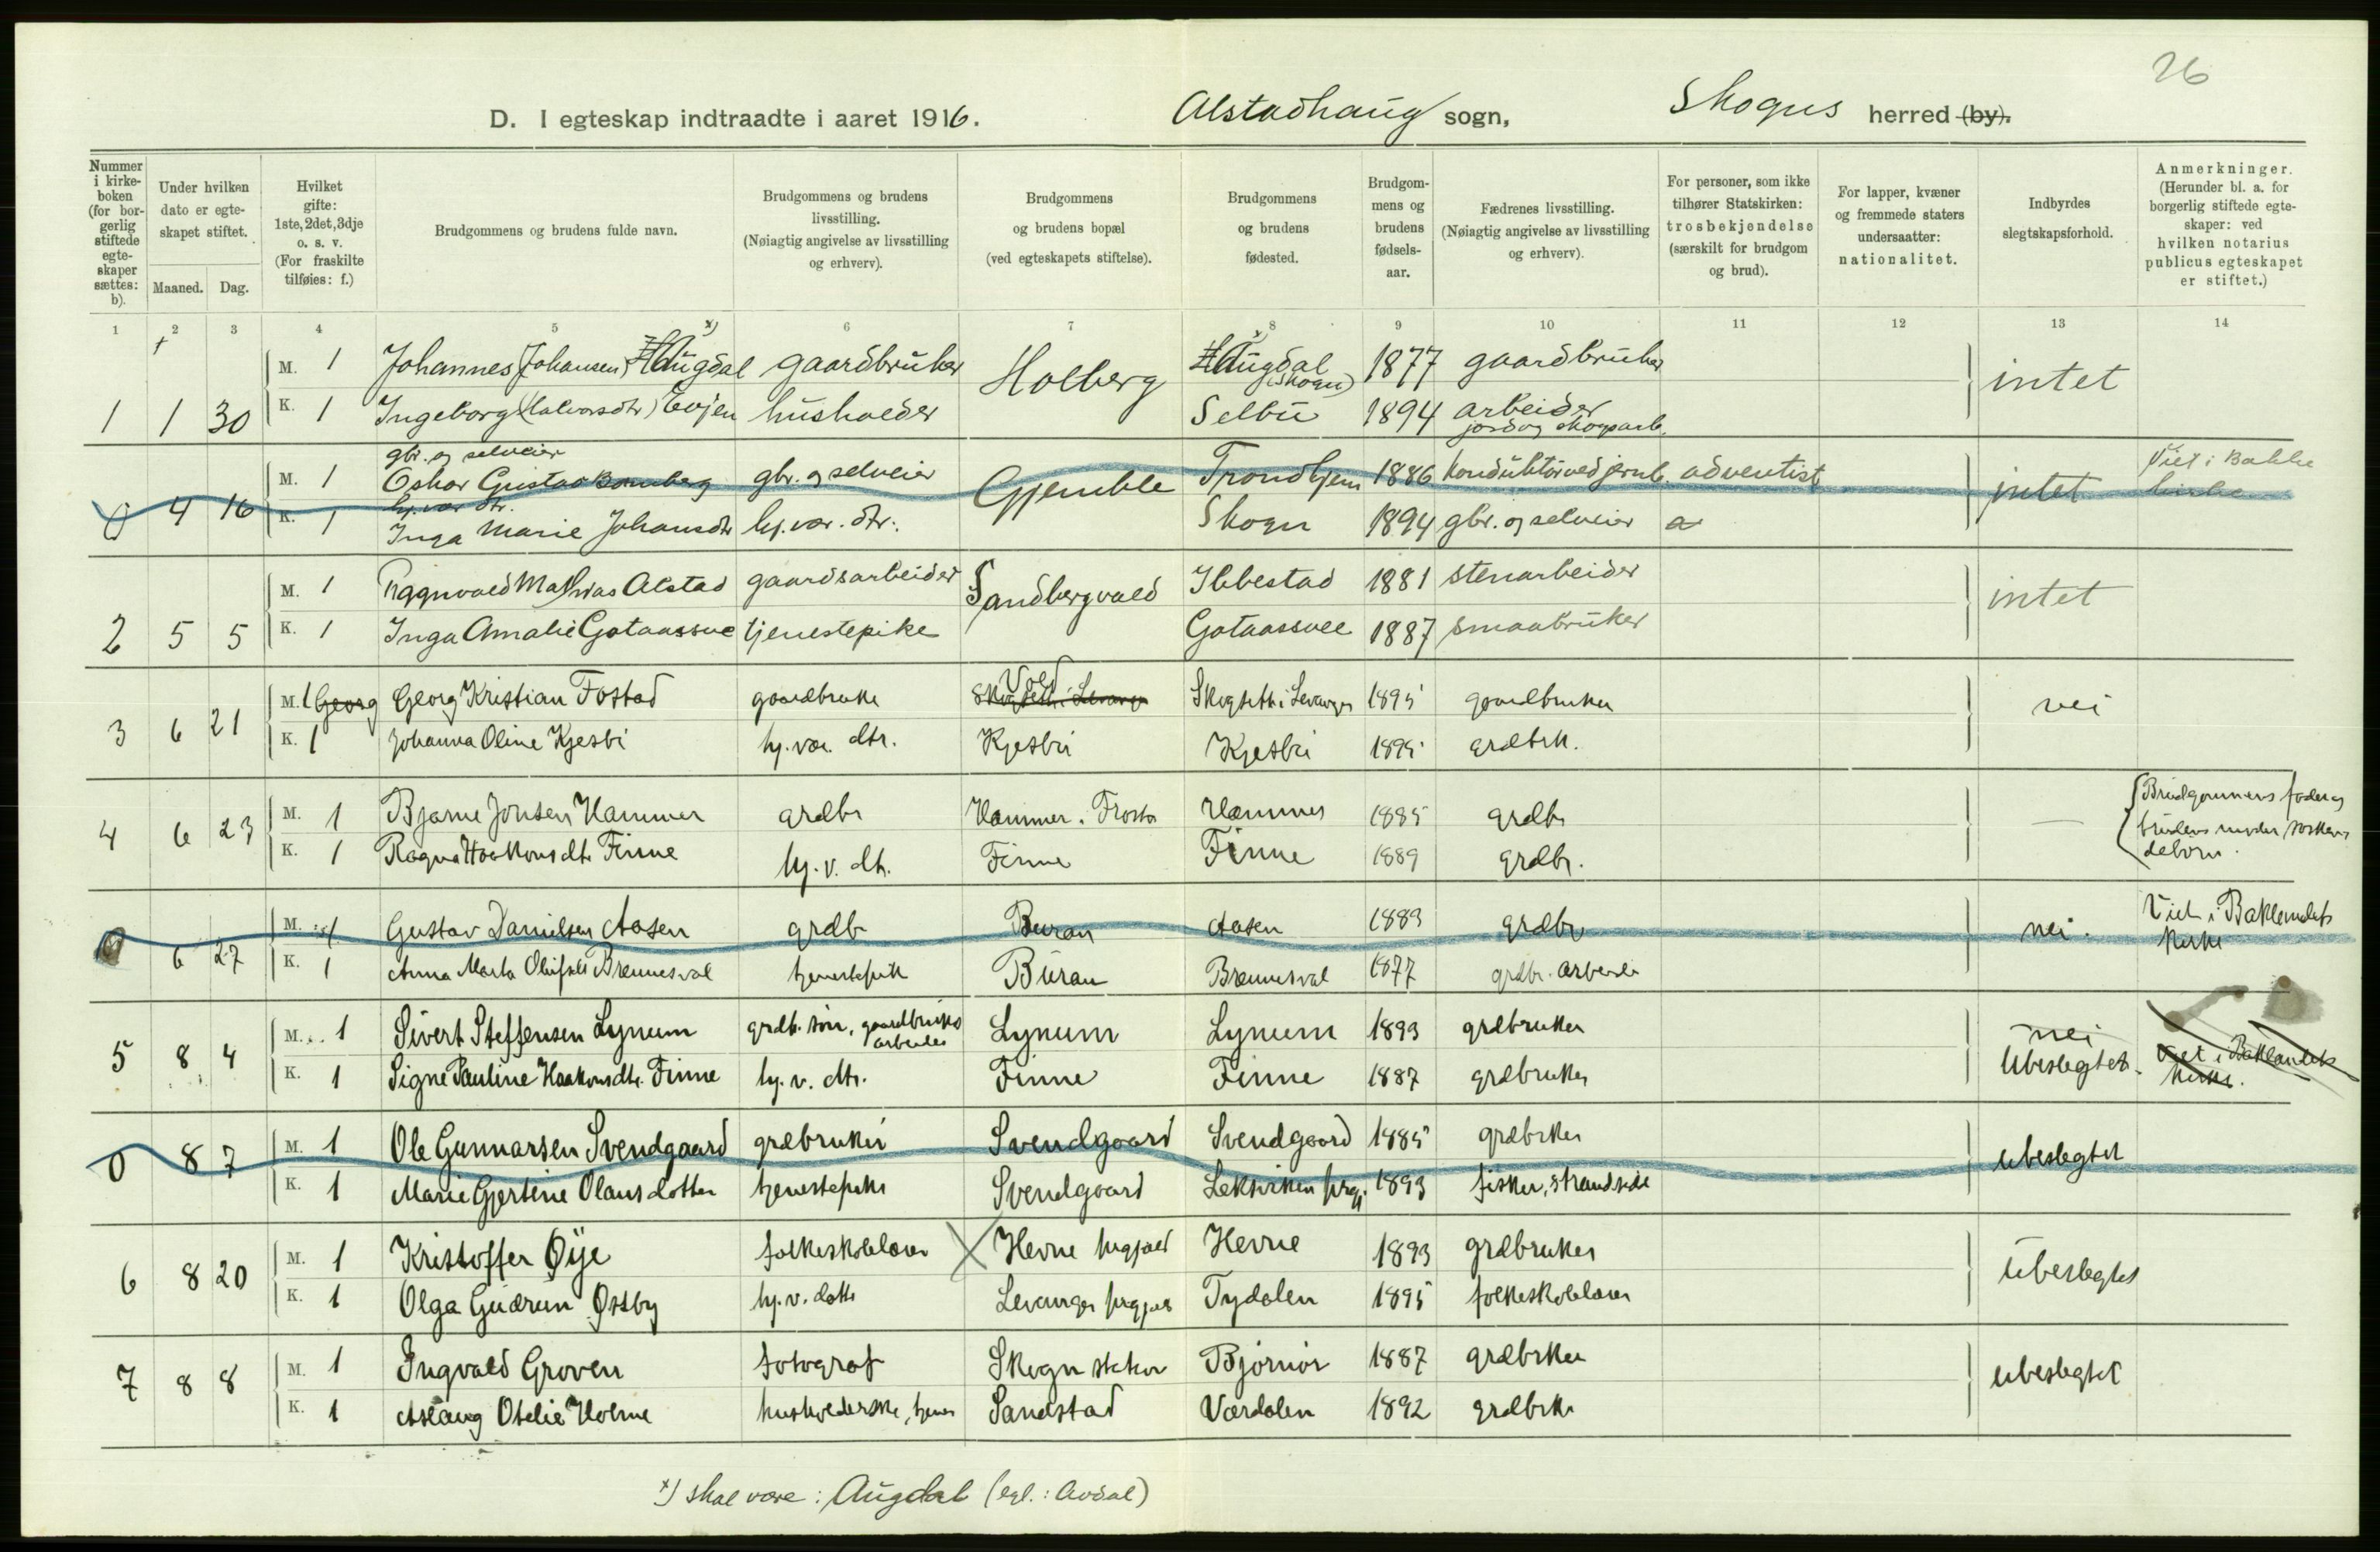 26
D. I egteskap indtraadte i aaret 1916. Alstadhaug sogn, Skogns herred (by).
Nummer i kirkeboken (for borgerlig stiftede egteskaper sættes: b).
Under hvilken dato er egteskapet stiftet.
Maaned. Dag.
Hvilket gifte: 1ste, 2det, 3dje o. s. v. (For fraskilte tilføies: f.)
Brudgommens og brudens fulde navn.
Brudgommens og brudens livsstilling. (Nøiagtig angivelse av livsstilling og erhverv).
Brudgommens og brudens bopæl (ved egteskapets stiftelse).
Brudgommens og brudens fødested.
Brudgommens og brudens fødselsaar.
Fædrenes livsstilling. (Nøiagtig angivelse av livsstilling og erhverv).
For personer, som ikke tilhører Statskirken: trosbekjendelse (særskilt for brudgom og brud).
For lapper, kvæner og fremmede staters undersaatter: nationalitet.
Indbyrdes slegtskapsforhold.
Anmerkninger. (Herunder bl. a. for borgerlig stiftede egteskaper: ved hvilken notarius publicus egteskapet er stiftet.)
1 2 3 4 5 6 7 8 9 10 11 12 13 14
M. 1 Johannes (Johansen) Haugdal x) gaardbruker Holberg Haugdal (Skogn) 1877 gaardbruker intet
1 1 30 K. 1 Ingeborg (Halvorsdtr) Evjen husholder Selbu 1894 arbeider jord og skogsarb.
gbr. og selveier
M. 1 Oskar Gustav Bomberg gbr. og selveier Gjemble Trondhjem 1886 konduktør ved jernb. adventist intet Viet i Bakke kirke
0 4 16 hj. vær dtr.
K. 1 Inga Marie Johansdtr hj. vær. dtr. Skogn 1894 gbr. og selveier
M. 1 Ragnvald Mathias Alstad gaardsarbeider Sandbergvald Ibbestad 1881 stenarbeider intet
2 5 5 K. 1 Inga Amalie Gotaassve tjenestepike Gotaassvee 1887 smaabruker
M. 1 Georg Georg Kristian Fostad gaardbruke Vold Skogseth i Levanger Skogseth i Levanger 1895 gaardbruker nei
3 6 21 K. 1 Johanna Oline Kjesbi hj. vær. dtr. Kjesbu Kjesbu 1895 grdbrk.
M. 1 Bjarne Jonsen Hammer grdbr Hammer. Frosta Hammer 1885 grdbr — Brudgommens fader og
4 6 23 brudens moder søskendebørn.
K. 1 Ragna Haakonsdtr Finne hj. v. dtr. Finne Finne 1889 grdbr.
M. 1 Gustav Danielsen Aasen grdbr Buran Aasen 1883 grdbr nei. Viet i Baklandets kirke
6 27 K. 1 Anna Marta Olufsdtr Brennesval tjenestepik Buran Brennesval 1877 grdbr. arbeide
M. 1 Sivert Steffensen Lynum grdb. søn, gaardbruks arbeider Lynum Lynum 1893 grdbruker nei
5 8 4 Ubeslegtet. Viet i Baklandets kirke.
K. 1 Signe Pauline Haakonsdtr. Finne hj. v. dtr. Finne Finne 1887 grdbruker
M. 1 Ole Gunnarsen Svendgaard grdbruker Svendgaard Svendgaard 1885 grdbrker ubeslegtet
0 8 7 K. 1 Marie Gjertine Olausdotter tjenestepike Svendgaard Leksviken prgj. 1893 fisker, strandside
M. 1 Kristoffer Øye folkeskolelærer Hevne prgjæld Hevne 1893 grdbruker Ubeslegtet
6 8 20 K. 1 Olga Gudrun Østby hj. v. datte Levanger prgjæld Tydalen 1895 folkeskolelærer
M. 1 Ingvald Groven fotograf Skogn station Bjørnør 1887 grdbrker ubeslegtet
7 8 8 K. 1 Aslaug Otelie Holme husholderske, tjener Sandstad Værdalen 1892 grdbrk
x) skal være: Augdal (egl.: Avdal)